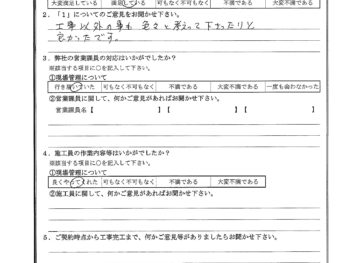 大変満足している 満足している 可もなく不可もなく 不満である 大変不満である
2．「1」についてのご意見をお聞かせ下さい。
工事以外の事も色々と考えて下さったりと
良かったです。
3．弊社の営業課員の対応はいかがでしたか？
※該当する項目に○を記入して下さい。
①現場管理について
行き届いていた 可もなく不可もなく 不満である 大変不満である 一度も会わなかった
②営業課員に関して、何かご意見があればお聞かせ下さい。
営業課員名【 】【 】【 】
4．施工員の作業内容等はいかがでしたか？
※該当する項目に○を記入して下さい。
①現場管理について
良くやってくれた 可もなく不可もなく 不満である 大変不満である
②施工員に関して、何かご意見があればお聞かせ下さい。
5．ご契約時点から工事完工まで、何かご意見等がありましたらお聞かせ下さい。